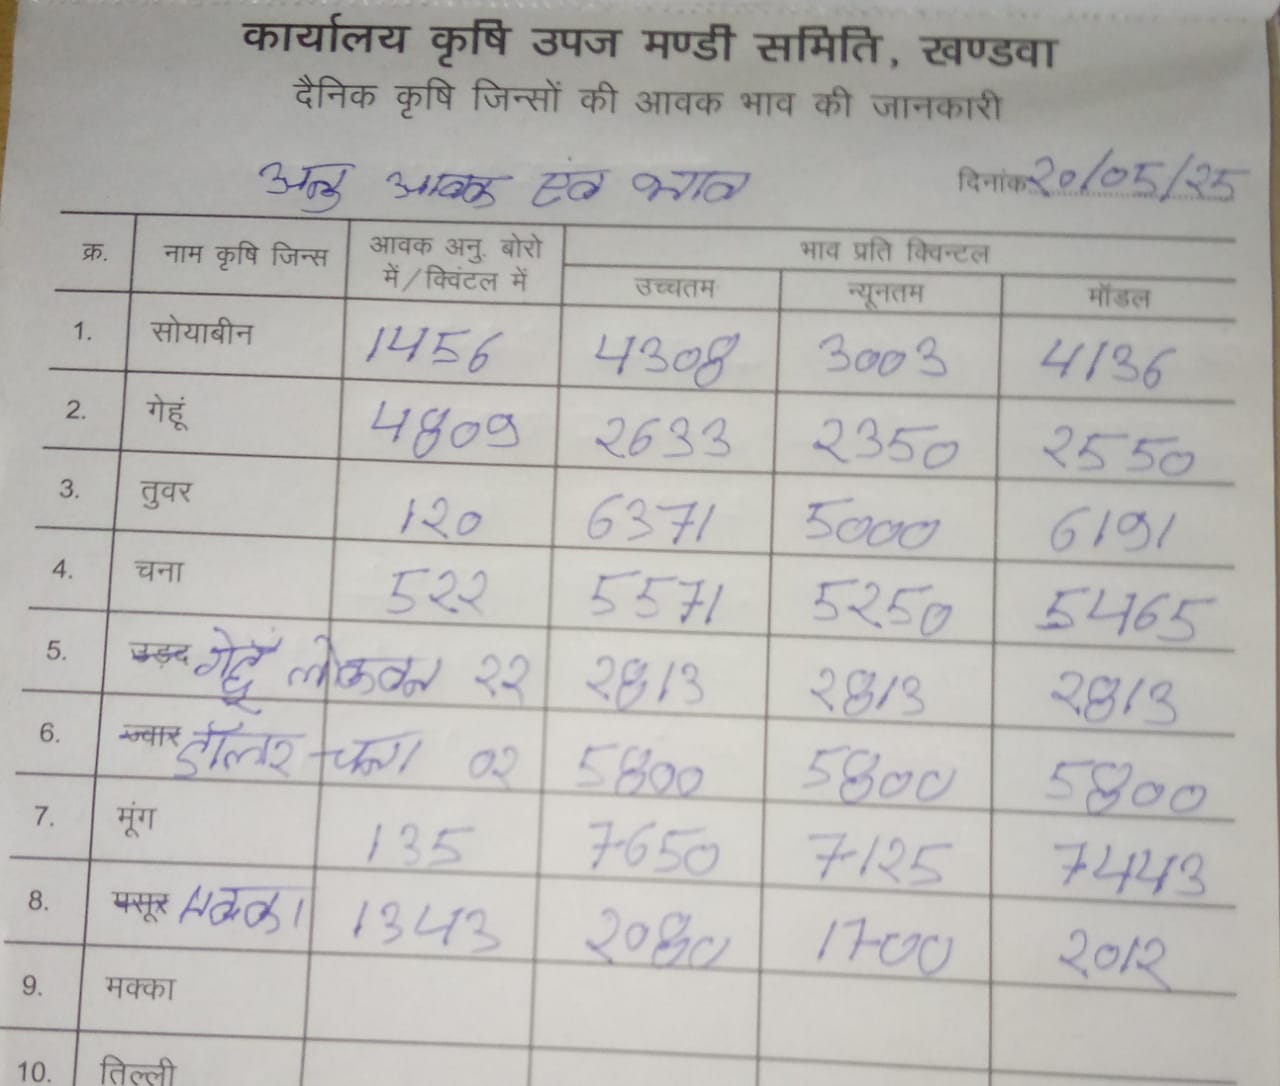 कार्यालय कृषि उपज मण्डी समिति, खण्डवा
दैनिक कृषि जिन्सों की आवक भाव की जानकारी
अनु आवक एवं भाव दिनांक 20/05/25
क्र. नाम कृषि जिन्स आवक अनु. बोरो में/क्विंटल में भाव प्रति क्विन्टल
उच्चतम न्यूनतम मॉडल
1. सोयाबीन 1456 4308 3003 4136
2. गेहूं 4809 2633 2350 2550
3. तुवर 120 6371 5000 6191
4. चना 522 5571 5250 5465
5. उड़द गेहूँ लोकवन 22 2813 2813 2813
6. ज्वार डॉलर चना 02 5800 5800 5800
7. मूंग 135 7650 7125 7443
8. मसूर मक्का 1343 2080 1700 2012
9. मक्का
10. तिल्ली